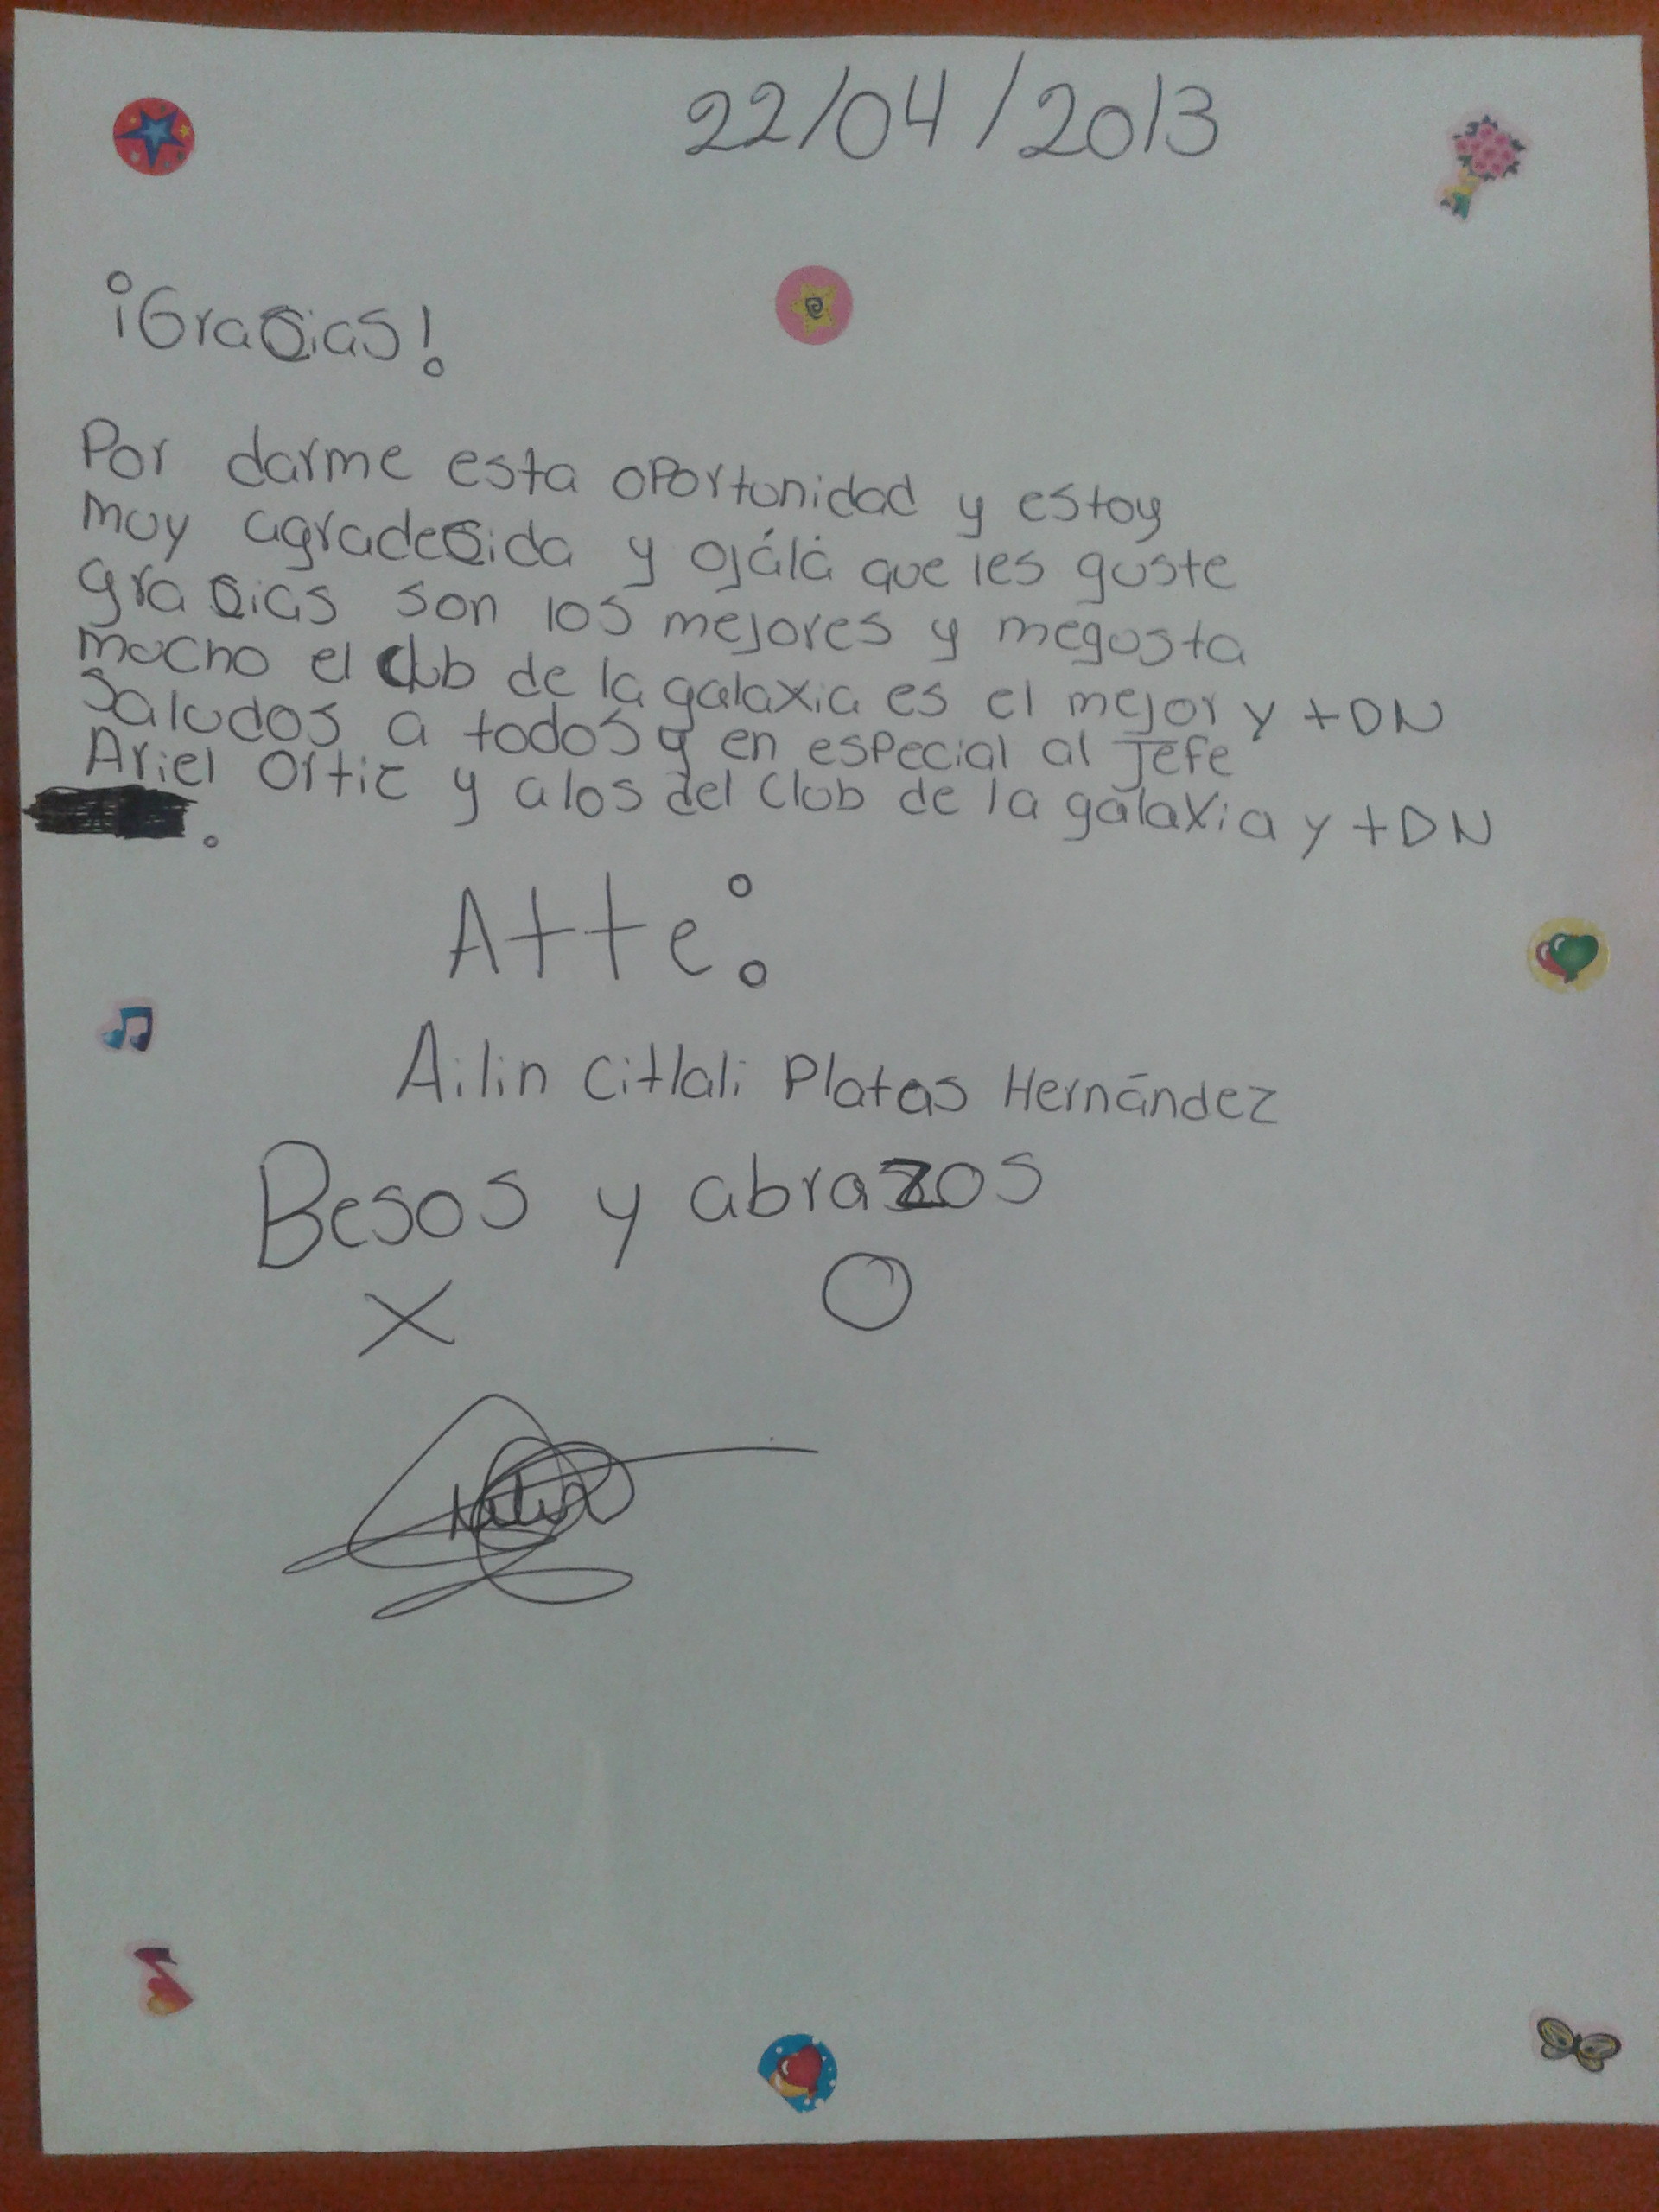 22/04/2013
¡Gracias!
Por darme esta oportunidad y estoy
muy agradecida y ojálá que les guste
gracias son los mejores y megusta
mucho el club de la galaxia es el mejor y +DN
Saludos a todos y en especial al Jefe
Ariel Ortiz y alos del Club de la galaxia y +DN
.
Atte:
Ailin Citlali Platas Hernández
Besos y abrazos
X O